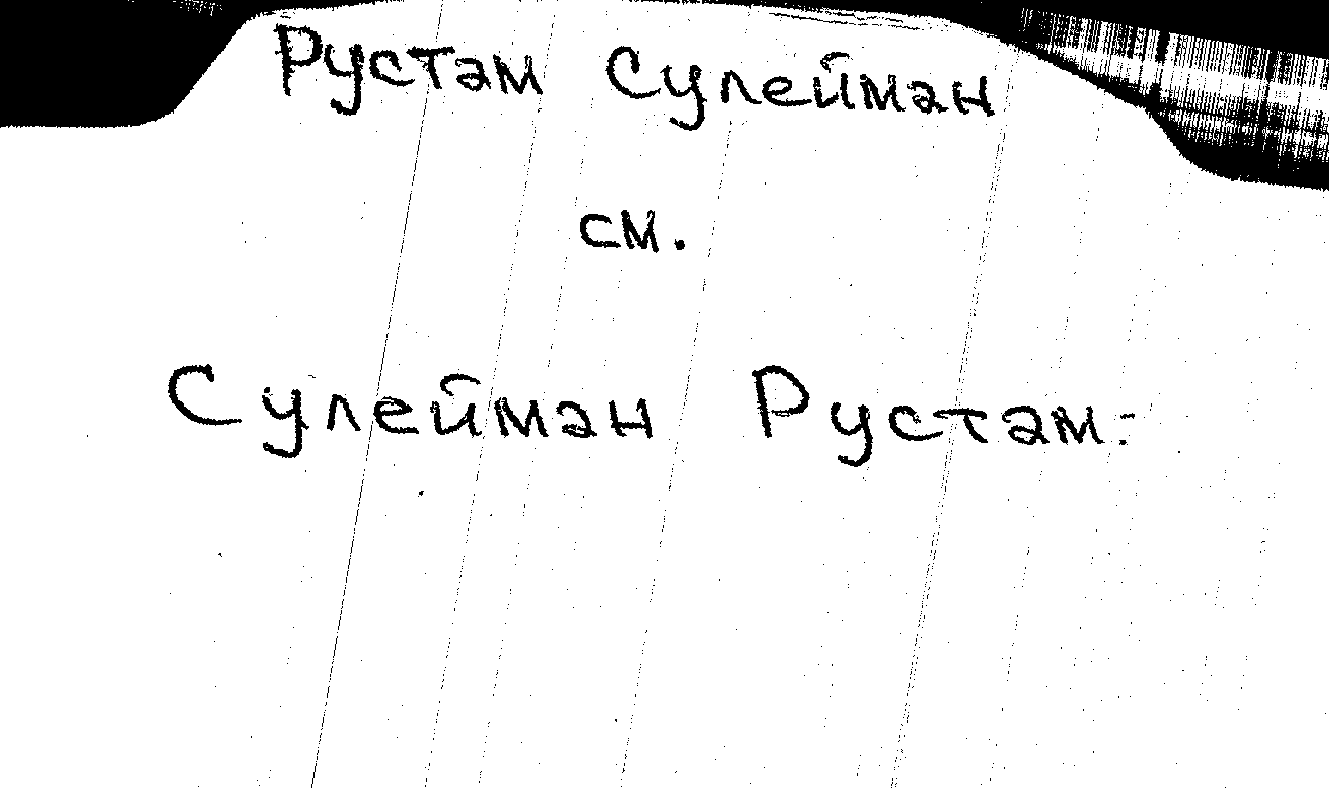 Рустам Сулейман
см.
Сулейман Рустам.